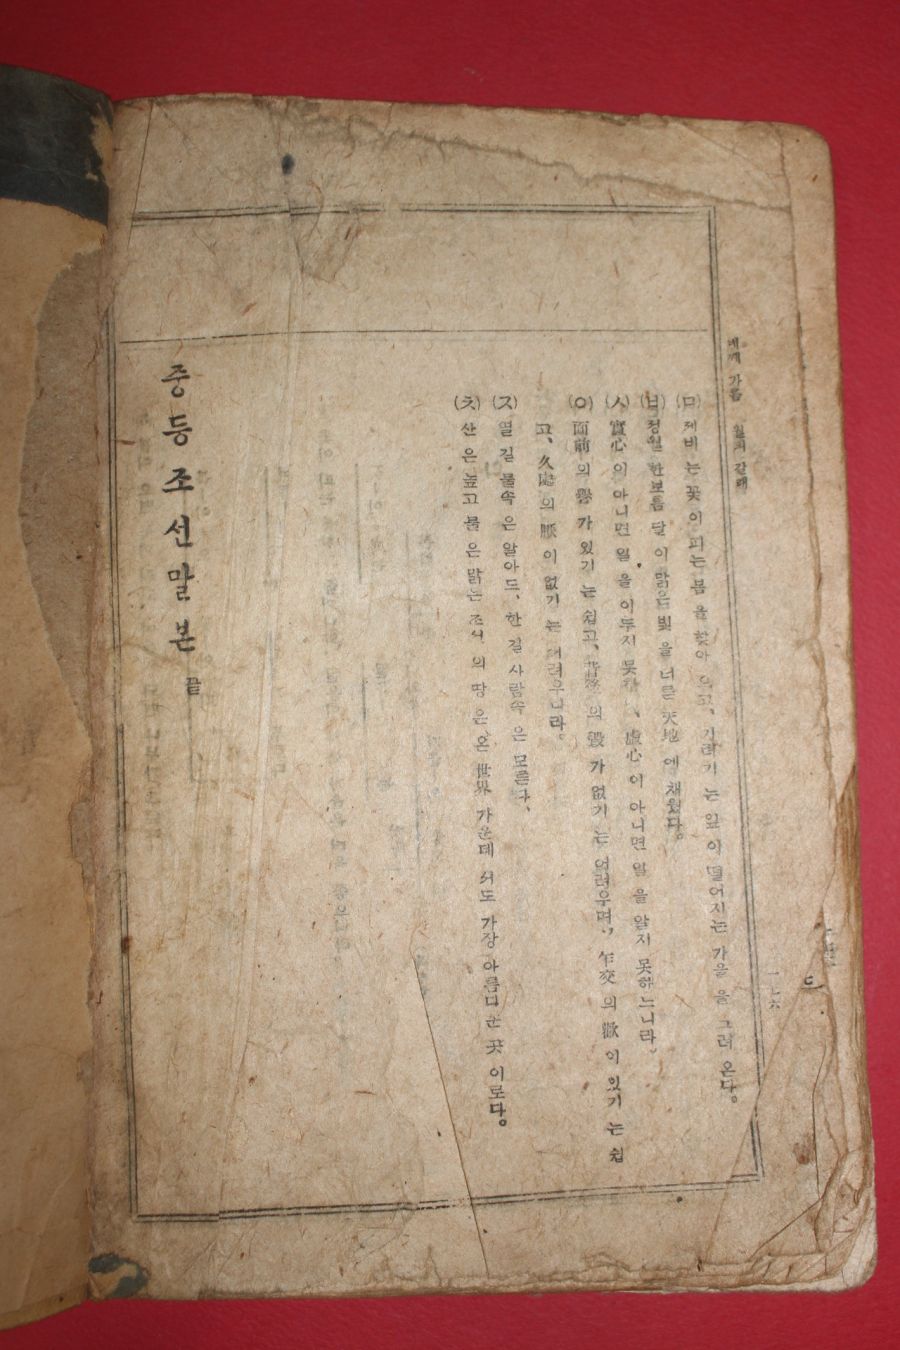 네째 가름 월의 갈래
一七六
(ㅁ) 제비 는 꽃 이 피는 봄 을 찾아 오고, 기러기 는 잎 이 떨어지는 가을 을 그려 온다。
(ㅂ) 정월 한보름 달 이 맑은 빛 을 너른 天地 에 채웠다。
(ㅅ) 實心 이 아니면 일 을 이루지 못하, 虛心 이 아니면 일 을 알지 못하느니라。
(ㅇ) 面前 의 譽 가 있기 는 쉽고, 背後 의 毁 가 없기 는 어려우며, 乍交 의 歡 이 있기 는 쉽
고, 久處 의 厭 이 없기 는 어려우니라。
(ㅈ) 열 길 물속 은 알아도, 한 길 사람속 은 모른다、
(ㅊ) 산 은 높고 물 은 맑는 조선 의 땅 은 온 世界 가운데 서도 가장 아름다운 곳 이로다。
중등조선말본 끝